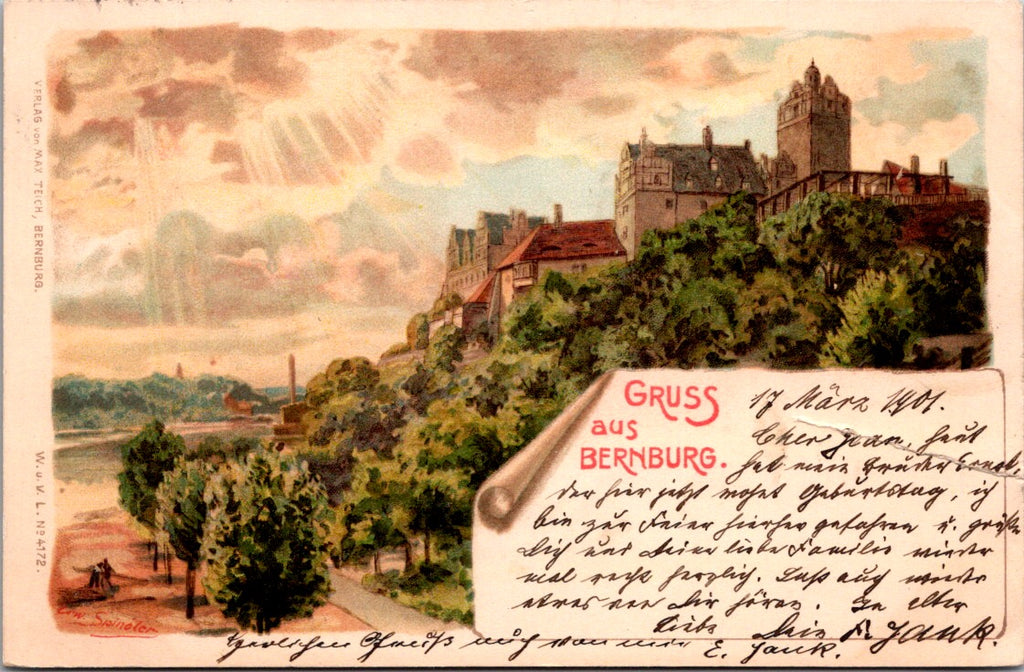 VERLAG von MAX TEICH, BERNBURG.
W. u. V. L. No 4172.
GRUSS
aus
BERNBURG.
17 März 1901.
Cher Jean, heut
hat mein Bruder Ernst,
der hier jetzt wohnt Geburtstag, ich
bin zur Feier hierher gefahren u. grüße
Dich und Deine liebe Familie wieder
mal recht herzlich. Laß auch wieder
etwas von Dir hören. In alter
Liebe Dein A. Jank.
Herzlichen Gruß auch von mir E. Jank.
Erw. Spindler